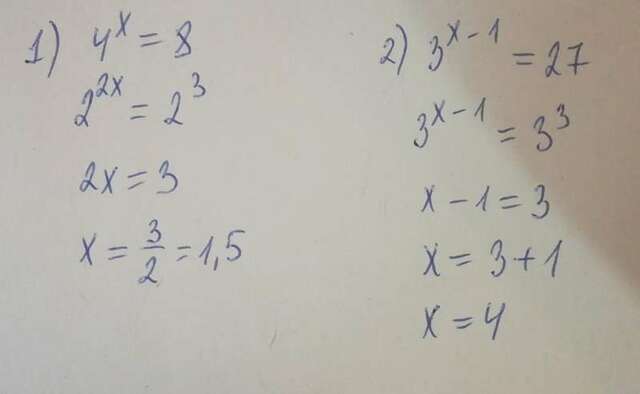 1) 4^x = 8
2^{2x} = 2^3
2x = 3
x = \frac{3}{2} = 1,5
2) 3^{x-1} = 27
3^{x-1} = 3^3
x - 1 = 3
x = 3 + 1
x = 4